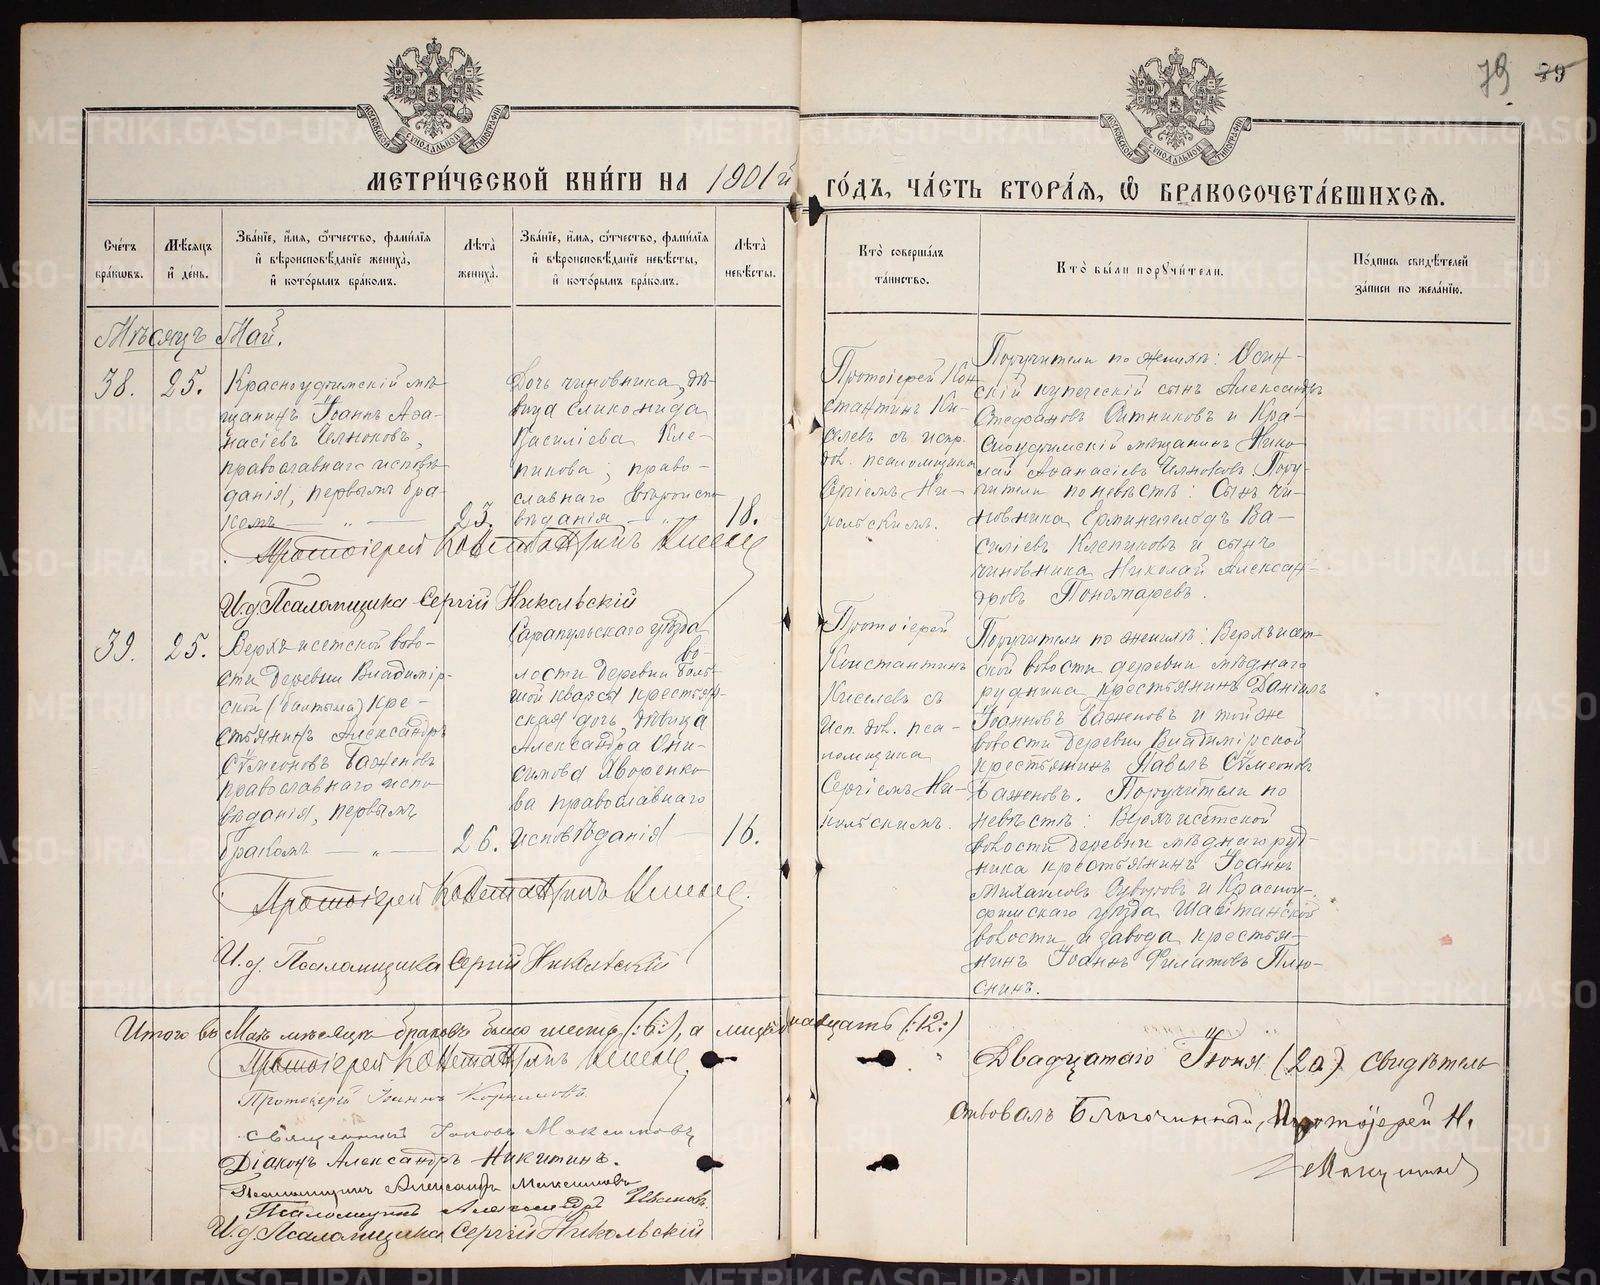 79 89
МЕТРИ́ЧЕСКОЙ КНИ́ГИ НА 1901й ГО́ДЪ, ЧА́СТЬ ВТОРА́Я, Ѡ БРАКОСОЧЕТА́ВШИХСЯ.
МОСКОВСКОЙ СѴНОДАЛЬНОЙ ТИПОГРАФІИ
МОСКОВСКОЙ СѴНОДАЛЬНОЙ ТИПОГРАФІИ
Сче́тъ бра́кѡвъ.
Мѣ́сяцъ и҆ де́нь.
Зва́нїе, и҆́мя, ѻ҆́тчество, фами́лїѧ и҆ вѣроисповѣ́данїе жениха̀, и҆ кото́рымъ бра́комъ.
Лѣта̀ жениха̀.
Зва́нїе, и҆́мя, ѻ҆́тчество, фами́лїѧ и҆ вѣроисповѣ́данїе невѣ́сты, и҆ кото́рымъ бра́комъ.
Лѣта̀ невѣ́сты.
Кто̀ соверша́лъ та́инство.
Кто̀ бы́ли порꙋчи́тели.
По́дпись свидѣ́телей за́писи по жела́нїю.
Мѣсяцъ Май.
38. 25.
Красноуфимскій мѣ-
щанинъ Іоаннъ Аѳа-
насіевъ Челноковъ,
православнаго исповѣ-
данія, первымъ бра-
комъ — „ —
23.
Дочь чиновника, дѣ-
вица Гликонида
Василіева Кле-
пикова; право-
славнаго вѣроиспо-
вѣданія — „
18.
Протоіерей Кон-
стантинъ Ки-
селевъ съ испр.
дол. псаломщика
Сергіемъ Ни-
кольскимъ.
Поручители по женихѣ: Осин-
скій купеческій сынъ Александръ
Стефановъ Ситниковъ и Кра-
сноуфимскій мѣщанинъ Нико-
лай Аѳанасіевъ Челноковъ. Пору-
чители по невѣстѣ: Сынъ чи-
новника Ерминигельдъ Ва-
силіевъ Клепиковъ и сынъ
чиновника Николай Алексан-
дровъ Пономаревъ.
Протоіерей Константинъ Киселевъ
И.д. Псаломщика Сергій Никольскій
39. 25.
Верхъ-исетской воло-
сти деревни Владимір-
ской (Балтыма) кре-
стьянинъ Александръ
Сѵмеоновъ Баженовъ
православнаго испо-
вѣданія, первымъ
бракомъ — „ —
26.
Сарапульскаго уѣзда
во-
лости деревни Боль-
шой квасы крестьян-
ская дочь, дѣвица
Александра Они-
симова Яворенко-
ва православнаго
исповѣданія —
16.
Протоіерей
Константинъ
Киселевъ съ
исп. дол. пса-
ломщика
Сергіемъ Ни-
кольскимъ.
Поручители по женихѣ: Верхъисет-
ской волости деревни мѣднаго
рудника крестьянинъ Даніилъ
Іоанновъ Баженовъ и той же
волости деревни Владимірской
крестьянинъ Павелъ Сѵмеоновъ
Баженовъ. Поручители по
невѣстѣ: Верхъисетской
волости деревни мѣднаго руд-
ника крестьянинъ Іоаннъ
Михайловъ Суворовъ и Красноу-
фимскаго уѣзда Шайтанской
волости и завода крестья-
нинъ Іоаннъ Филатовъ Плю-
снинъ.
Протоіерей Константинъ Киселевъ
И.д. Псаломщика Сергій Никольскій
Итого въ Маѣ мѣсяцѣ браковъ было шесть (:6:), а лицъ двѣнадцать (:12:)
Протоіерей Константинъ Киселевъ
Протоіерей Іоаннъ Корниловъ
Священникъ Іаковъ Максимовъ
Діаконъ Александръ Никитинъ.
Псаломщикъ Александръ Максимовъ
Псаломщикъ Александръ Ивановъ
И.д. Псаломщика Сергій Никольскій
Двадцатаго Іюня (20) свидѣтель-
ствовалъ Благочинный, Протоіерей Н.